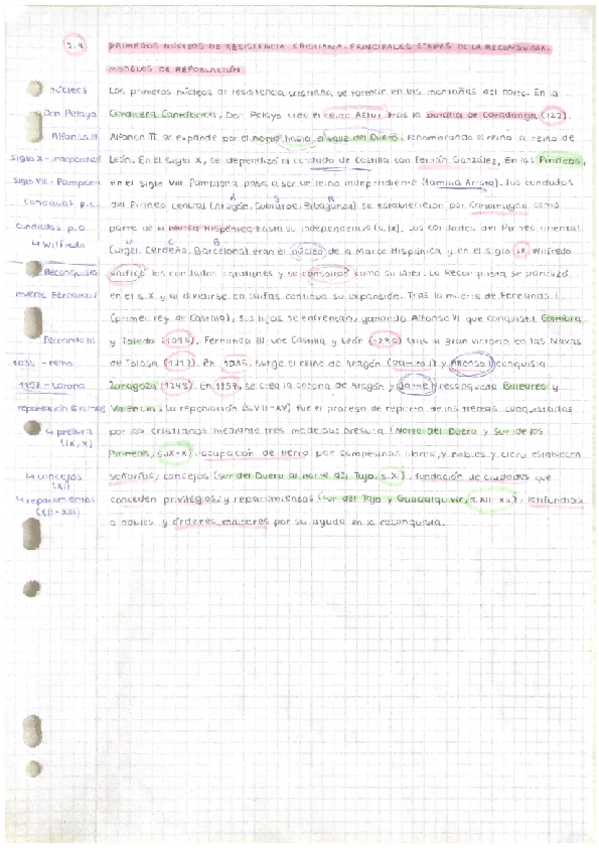 2.4 PRIMEROS NÚCLEOS DE RESISTENCIA CRISTIANA. PRINCIPALES ETAPAS DE LA RECONQUISTA.
MODELOS DE REPOBLACIÓN
núcleos
Los primeros núcleos de resistencia cristiana se forman en las montañas del norte. En la
Don Pelayo
Cordillera Cantábrica, Don Pelayo creó el reino Astur tras la batalla de Covadonga (722).
Alfonso III
Alfonso III se expande por el norte hasta el valle del Duero, renombrando el reino a reino de
Siglo X - independiza
León. En el siglo X, se independizó el condado de Castilla con Fernán González. En los Pirineos,
Siglo VIII - Pamplona
en el siglo VIII Pamplona pasa a ser un reino independiente (familia Arista). Los condados
Condados p.c.
A S R
del Pirineo central (Aragón, Sobrarbe, Ribagorza) se establecieron por Carlomagno como
Condados p.o.
parte de la Marca Hispánica hasta su independencia (s. IX). Los condados del Pirineo oriental
↳ Wilfredo
U C B
(Urgel, Cerdeña, Barcelona) eran el núcleo de la Marca Hispánica y en el siglo IX Wilfredo
Reconquista
unificó los condados catalanes y se consolidó como su líder. La Reconquista se paralizó
muerte Fernando I
en el s. X, y al dividirse en taifas continua su expansión. Tras la muerte de Fernando I
(primer rey de Castilla), sus hijos se enfrentan, ganando Alfonso VI que conquista Coimbra
Fernando III
y Toledo (1085). Fernando III une Castilla y León (1230) tras la gran victoria en las Navas
1035 - reino
de Tolosa (1212). En 1035, surge el reino de Aragón (Ramiro I) y Alfonso I conquista
1137 - Corona
Zaragoza En 1137, se crea la corona de Aragón y Jaime I reconquista Baleares y
repoblación
Valencia. La repoblación (s. VIII-XV) fue el proceso de reparto de las tierras conquistadas
↳ presura
por los cristianos mediante tres modelos: presura (Norte del Duero y Sur de los
(IX, X)
Pirineos, s. IX-X), ocupación de tierra por campesinos libres, y nobles y clero establecen
↳ concejos
señoríos; concejos (sur del Duero al norte del Tajo, s. X), fundación de ciudades que
↳ repartimientos
conceden privilegios; y repartimientos (sur del Tajo y Guadalquivir, s. XII, XIII), latifundios
a nobles y órdenes militares por su ayuda en la reconquista.